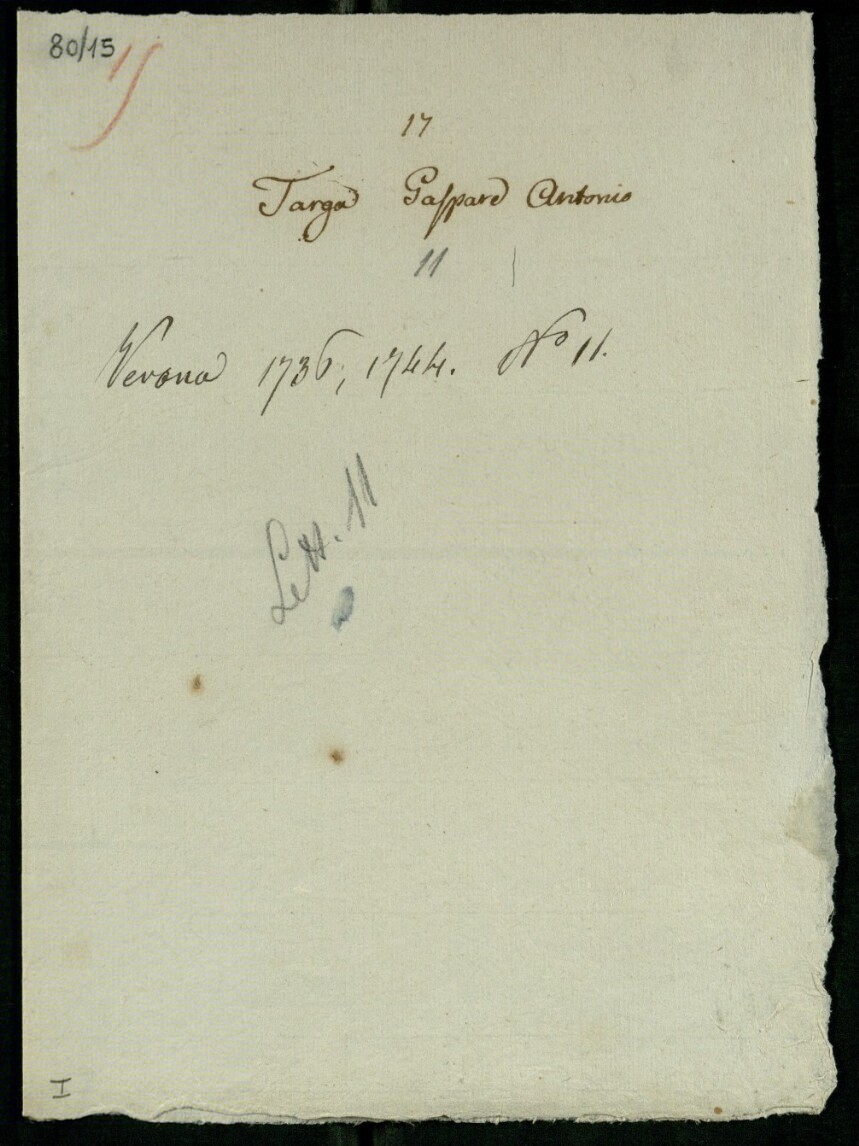 80/15
15
17
Targa Gaspare Antonio
11
Verona 1736, 1744. No 11.
Lett. 11
I